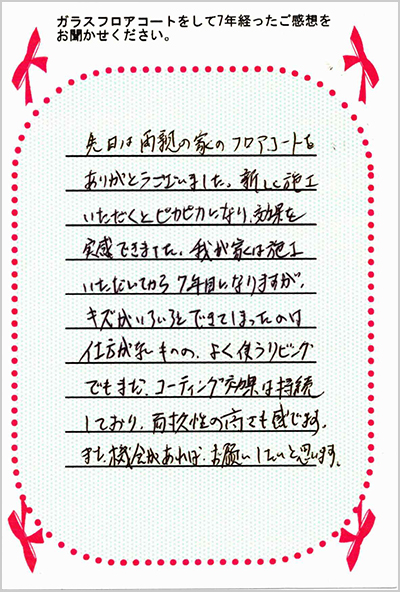 ガラスフロアコートをして7年経ったご感想を
お聞かせください。
先日は両親の家のフロアコートを
ありがとうございました。新しく施工
いただくとピカピカになり、効果を
実感できました。我が家は施工
いただいてから7年目になりますが、
キズがいろいろとできてしまったのは
仕方がないものの、よく使うリビング
でもまだ、コーティング効果は持続
しており、耐久性の高さも感じます。
また機会があれば、お願いしたいと思います。